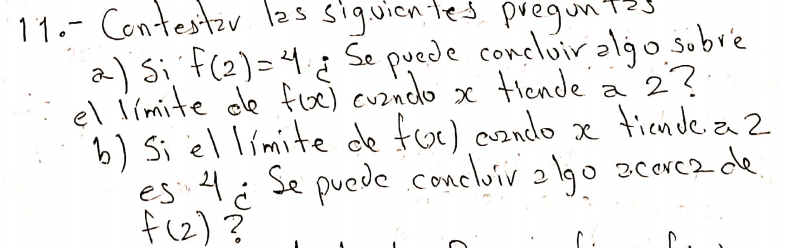 11.- Contestar las siguientes preguntas
a) Si f(2)=4 ¿ Se puede concluir algo sobre
el límite de f(x) cuando x tiende a 2?
b) Si el límite de f(x) cuando x tiende a 2
es 4 ¿ Se puede concluir algo acerca de
f(2)?